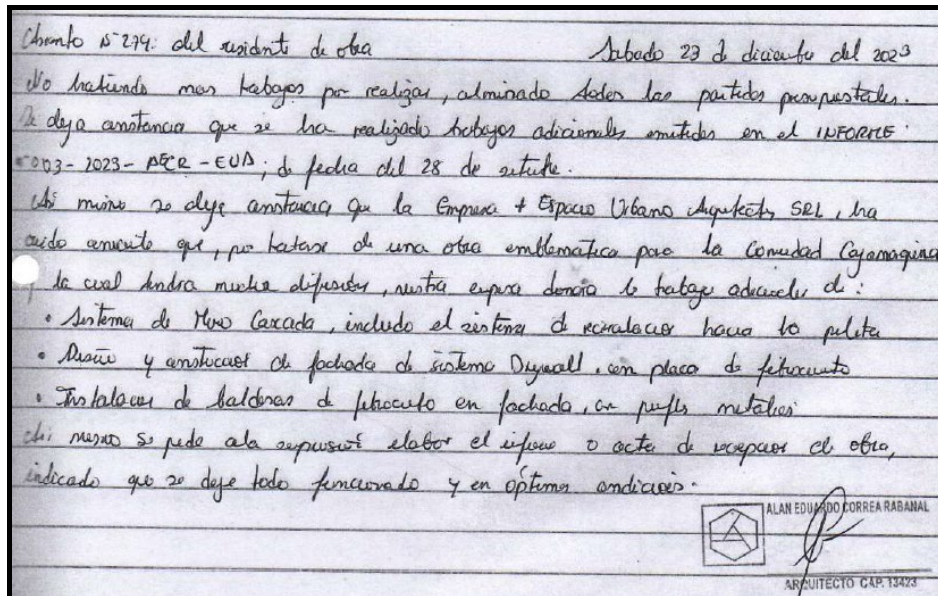 Asiento N°279: del residente de obra Sabado 23 de diciembre del 2023
No habiendo mas trabajos por realizar, culminado todas las partidas presupuestales.
Se deja constancia que se ha realizado trabajos adicionales emitidos en el INFORME
003-2023-AECR-EUA, de fecha del 28 de
Asi mismo se deja constancia que la Empresa + Espacio Urbano Arquitectos SRL, ha
sido que, por tratarse de una obra emblematica para la Comunidad Cajamarquina
y la cual tendra mucha difusión, nuestra empresa donaria lo trabajo adicionales de:
• Sistema de Muro Cascada, incluido el sistema de recirculacion hacia la pileta
• Diseño y construccion de fachada de sistema Drywall, con placa de fibrocemento
• Instalacion de baldosas de fibrocemento en fachada, con perfiles metalicos
Asi mismo se pide a la supervisión elabor el informe o acta de recepcion de obra,
indicado que se deje todo funcionado y en óptimas condiciones.
ALAN EDUARDO CORREA RABANAL
ARQUITECTO CAP. 13423